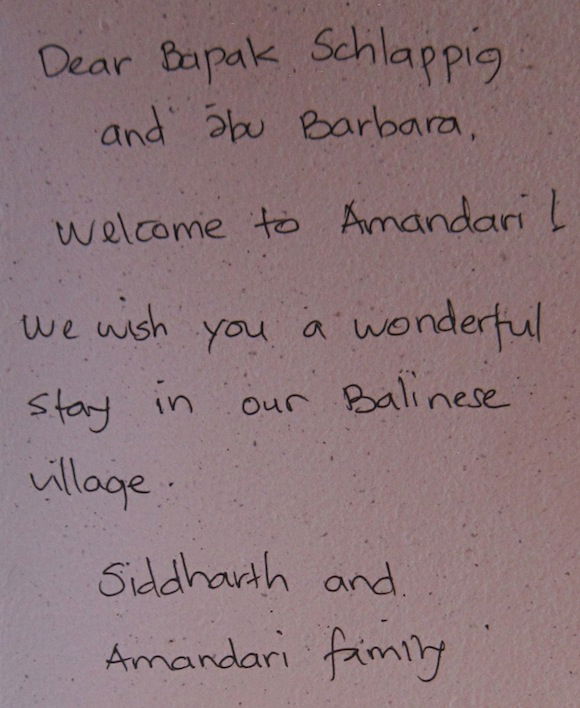 Dear Bapak Schlappig
and Ibu Barbara,
Welcome to Amandari!
We wish you a wonderful
stay in our Balinese
village.
Siddharth and
Amandari family